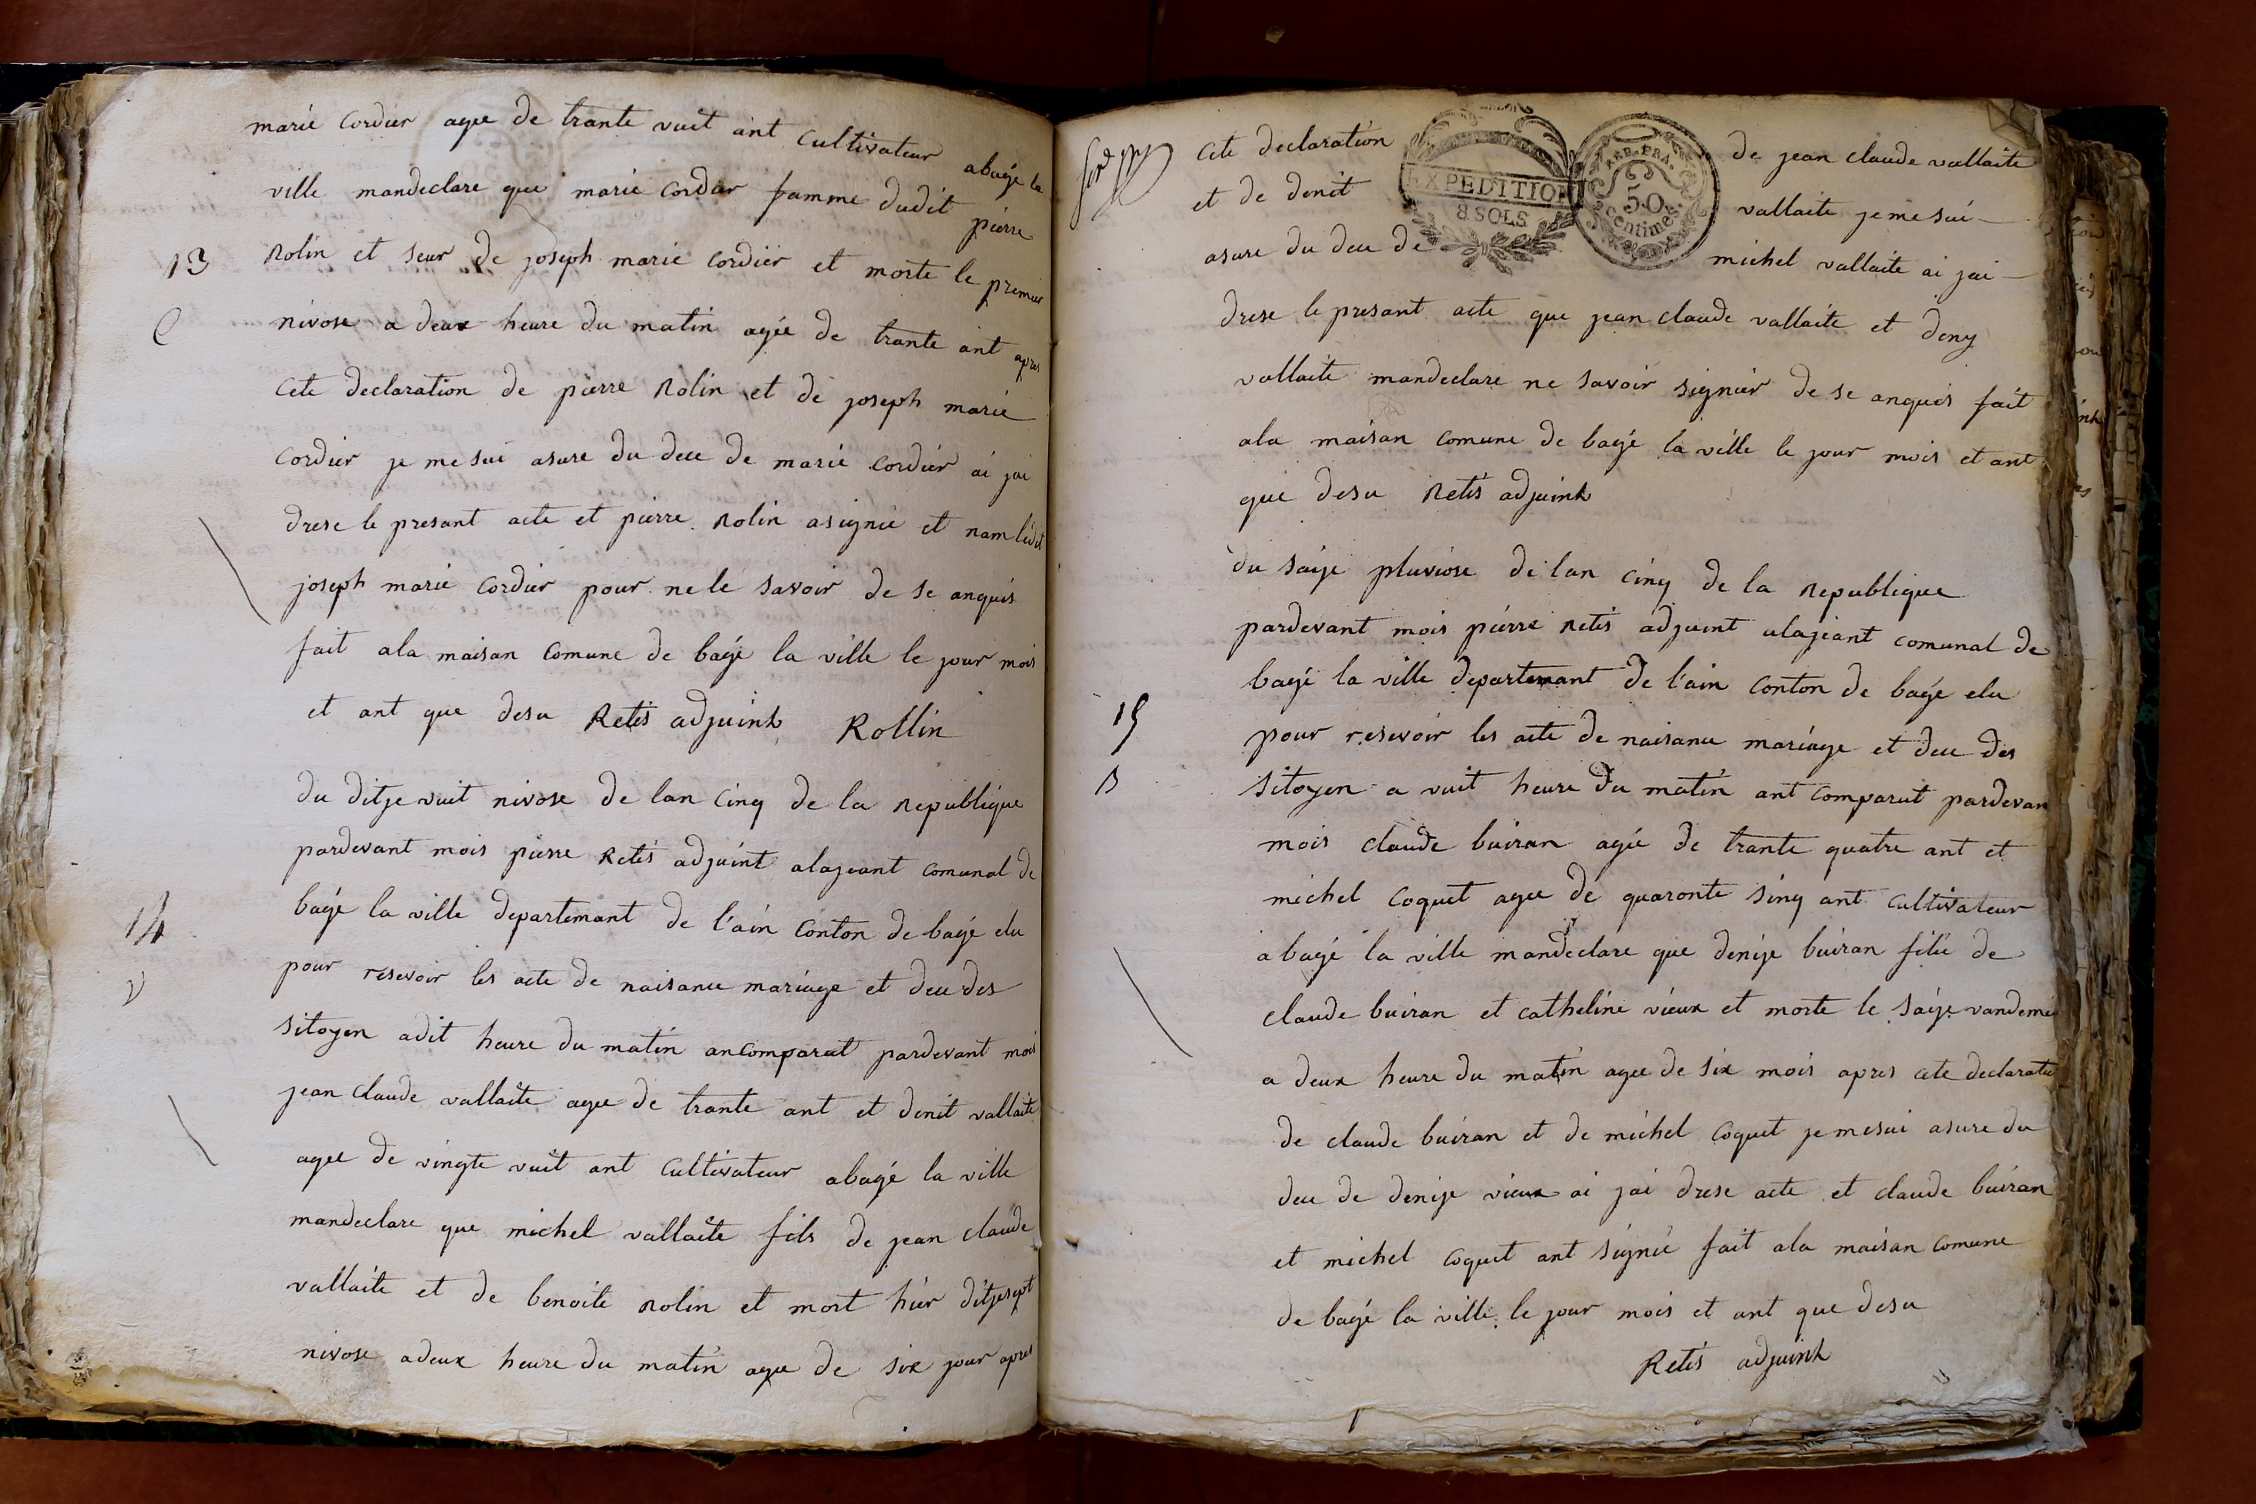 marie cordier agee de trante vuit ant cultivateur abagé la
ville mandeclare que marie cordier famme dudit pierre
13
Rolin et seur de joseph marie cordier et morte le premier
C
nivose a deux heure du matin agée de trante ant apres
cete declaration de pierre Rolin et de joseph marie
cordier je me sui asure du dece de marie cordier ai jai
drese le presant acte et pierre Rolin a signié et nam ledit
joseph marie cordier pour ne le savoir de se anquis
fait ala maison comune de bagé la ville le jour mois
et ant que desu Retis adjuint Rollin
du ditje vuit nivose de lan cinq de la Republique
pardevant mois pierre Retis adjuint alajeant comunal de
14
bagé la ville departemant de l'ain Conton de bagé elu
V
pour resevoir les acte de naisance mariage et dece des
sitoyen adit heure du matin ancomparut pardevant mois
jean claude vallaite agee de trante ant et denit vallaite
agee de vingte vuit ant cultivateur abagé la ville
mandeclare que michel vallaite fils de jean claude
vallaite et de benoite Rolin et mort hier ditjesept
nivose adeux heure du matin agee de six jour apres
cete declaration de jean claude vallaite
EXPEDITION
8 SOLS
REP. FRA.
50
centimes
et de denit vallaite je me sui
asure du dece de michel vallaite ai jai
drese le presant acte que jean claude vallaite et deny
vallaite mandeclare ne savoir signier de se anquis fait
ala maison comune de bagé la ville le jour mois et ant
que desu Retis adjuint
du saije pluviose de lan cinq de la Republique
pardevant mois pierre Retis adjuint alajeant comunal de
bagé la ville departemant de l'ain Conton de bagé elu
15
pour resevoir les acte de naisance mariage et dece des
B
sitoyen a vuit heure du matin ant comparut pardevan
mois claude buiran agée de trante quatre ant et
michel coquet agee de quaronte sinq ant cultivateur
a bagé la ville mandeclare que denije buiran filie de
claude buiran et catheline vieux et morte le saije vandemie
a deux heure du matin agee de six mois apres cete declaratio
de claude buiran et de michel coquet je me sui asure du
dece de denije vieux ai jai drese acte et claude buiran
et michel coquet ant signié fait ala maison comune
de bagé la ville le jour mois et ant que desu
Retis adjuint